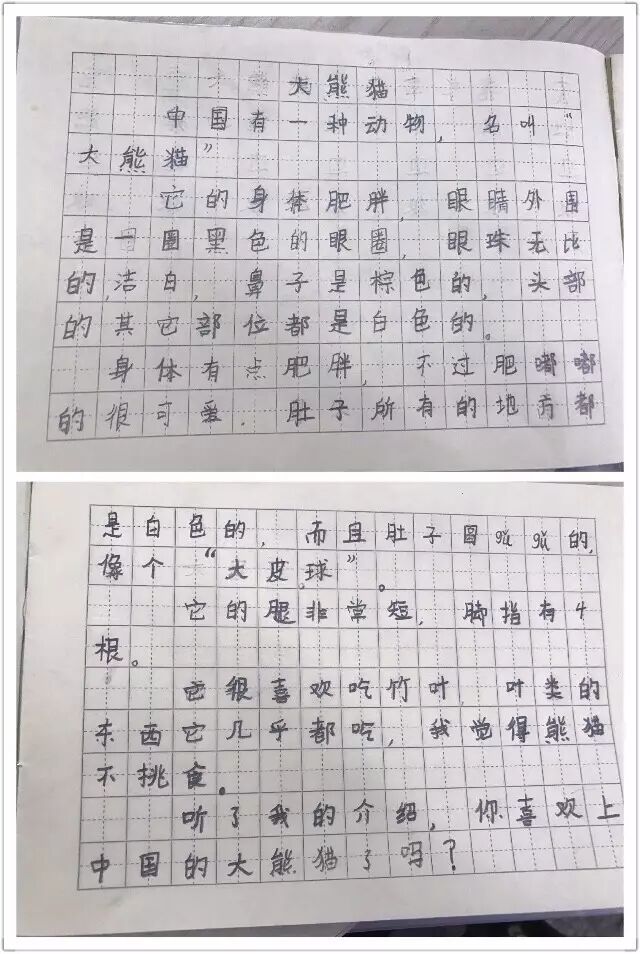 大熊猫
中国有一种动物，名叫“
大熊猫”
它的身体肥胖，眼睛外围
是一圈黑色的眼圈，眼珠无比
的洁白，鼻子是棕色的，头部
的其它部位都是白色的。
身体有点肥胖，不过肥嘟嘟
的很可爱．肚子所有的地方都
是白色的，而且肚子圆gǔ gǔ的，
像个“大皮球”。
它的腿非常短，脚指有4
根。
它很喜欢吃竹叶，叶类的
东西它几乎都吃，我觉得熊猫
不挑食。
听了我的介绍，你喜欢上
中国的大熊猫了吗？